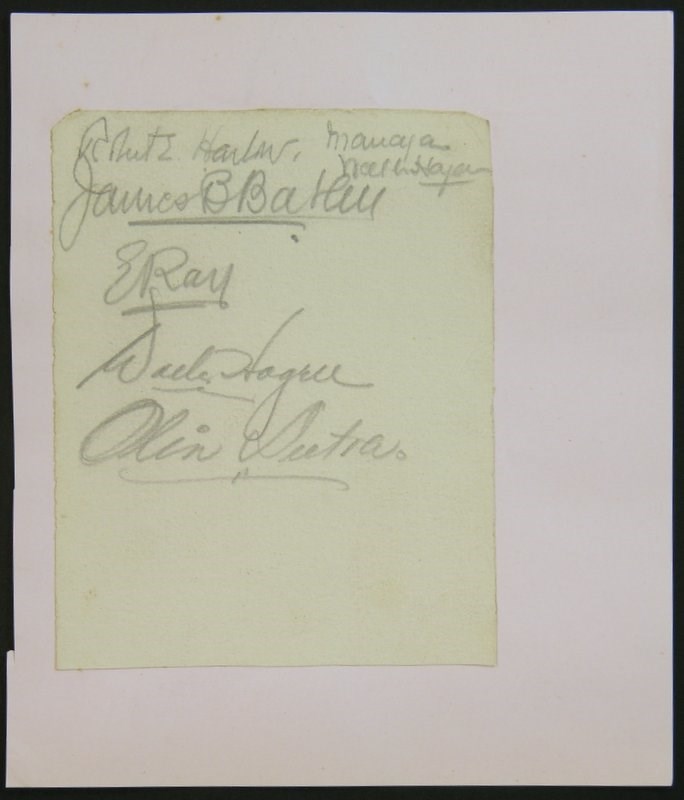 Robert E. Harlow, Manager
Walter Hagen
James B Batley
E Ray
Walter Hagen
Olin Dutra.